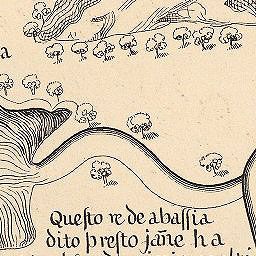 a
Questo re de abassia
dito p̱resto jañe ha